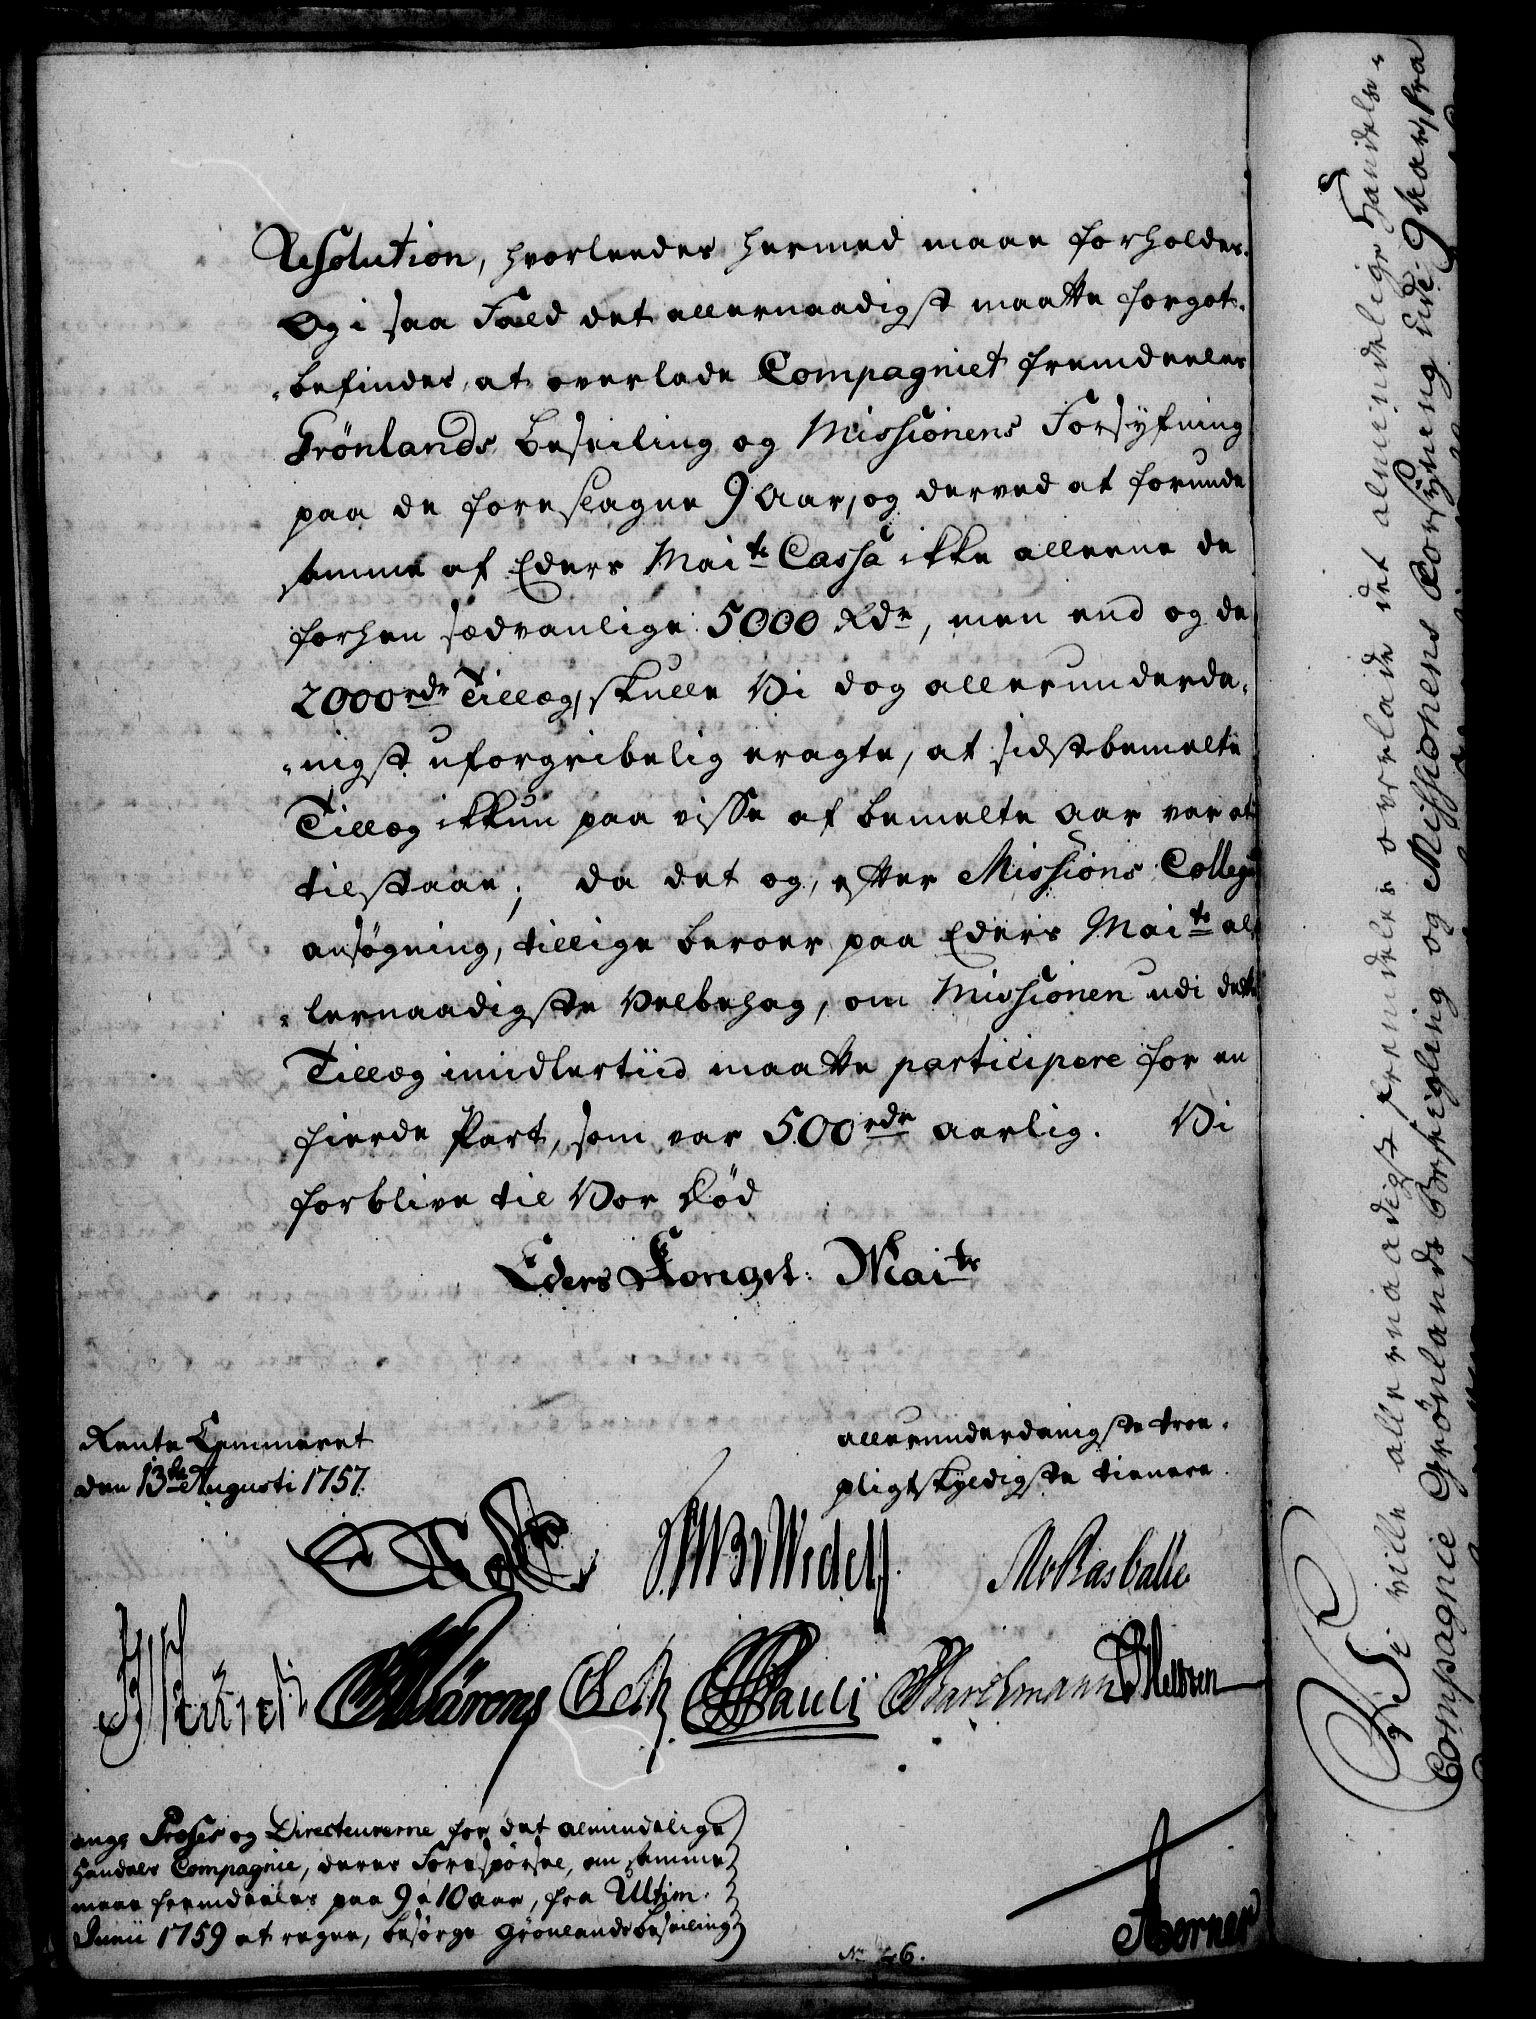 Resolution, hvorleedes hermed maae forholdes.
Og i saa Fald det allernaadigst maatte forgot-
befindes, at overlade Compagniet fremdeeles
Grönlands Beseiling og Missionens Forsÿfning
paa de foreslagne 9 Aar, og derved at forunde
samme af Eders Mai:ts Cassa ikke alleene de
forhen sædvanlige 5000 Rdr, men end og de
2000 rdr Tillæg, skulle Vi dog allerunderda-
-nigst uforgribelig eragte, at sidstbemelte
Tillæg ikkun paa visse af bemelte Aar var at
tilstaae; da det og, efter Missions Collegii
ansøgning, tillige beroer paa Eders Mai:ts al-
-lernaadigste Velbehag, om Missionen udi dette
Tillæg imidlertiid maatte participere for en
fierde Part, som var 500 rdr aarlig. Vi
forblive til Vor Død
Eders Kongel: Mai:ts
Rente Cammeret
den 13de Augusti 1757.
allerunderdanigste troe-
pligtskyldigste tienere
Wedell
Rasballe
Pauli
Barchmann
ang: Præses og Directeurerne for det almindelige
Handels Compagnie, deres Forespørsel, om samme
maae fremdeeles paa 9 a 10 aar, fra Ultim.
Junii 1759 at regne, besørge Grönlands beseiling
No 46.
Vi ville allernaadigst fremdeles overlade det almindelige Handels-
Compagnie Grönlands Besseigling og Missionens Forsÿning udi 9 Aar, fra